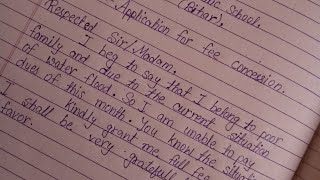 School.
(Bihar),
Application for fee concession.
Respected Sir/Madam.
I beg to say that I belong to poor
family and due to the current situation
of water flood. So I am unable to pay
dues of this month. You know the situation
kindly grant me full fee
I shall be very gratefull
favor.